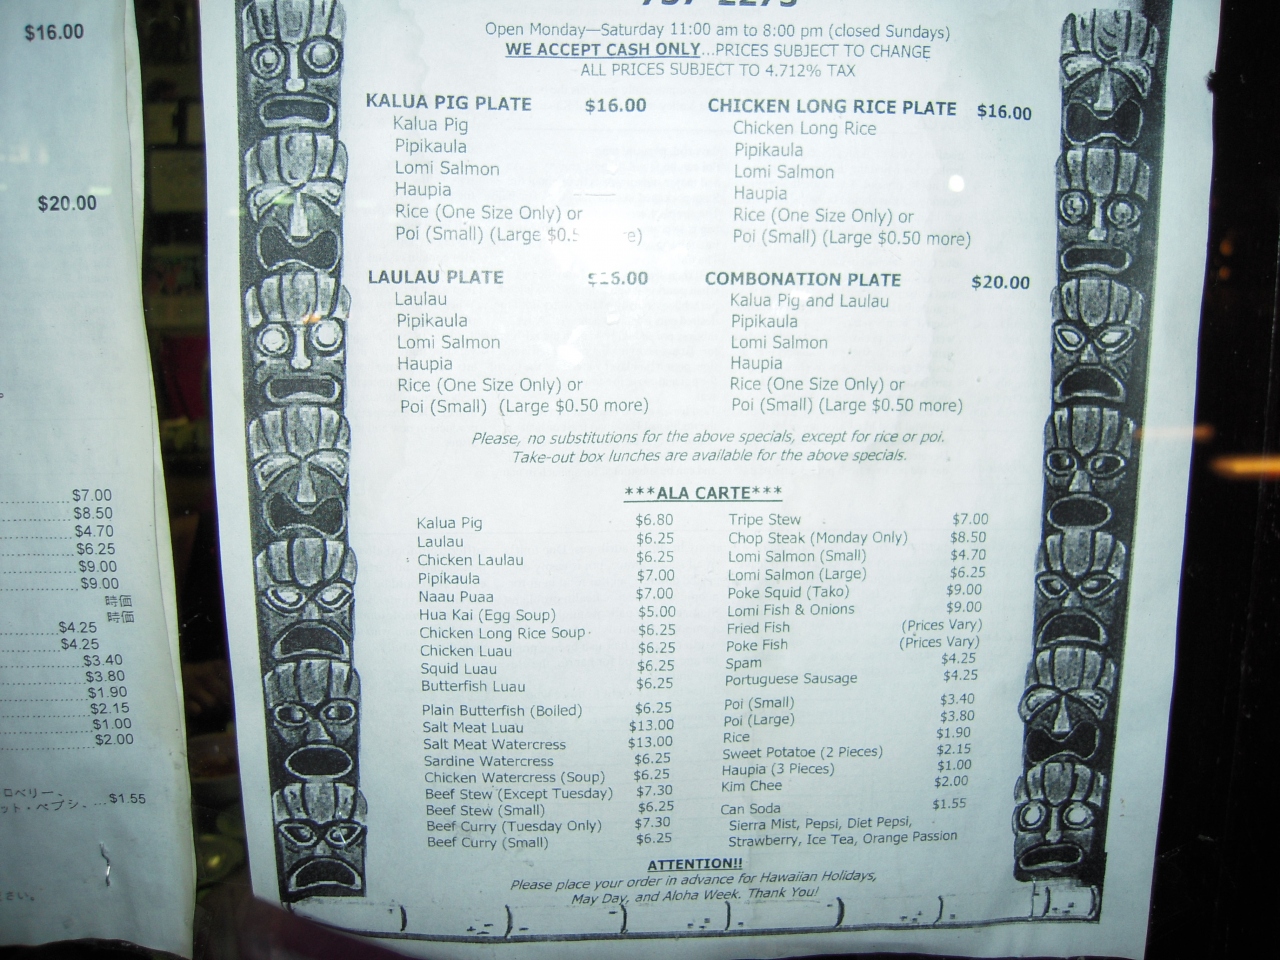 $16.00
$20.00
$7.00
$8.50
$4.70
$6.25
$9.00
$9.00
時価
時価
$4.25
$4.25
$3.40
$3.80
$1.90
$2.15
$1.00
$2.00
ロベリー、
ット・ペプシ. ...$1.55
ださい。
737-2275
Open Monday—Saturday 11:00 am to 8:00 pm (closed Sundays)
WE ACCEPT CASH ONLY...PRICES SUBJECT TO CHANGE
ALL PRICES SUBJECT TO 4.712% TAX
KALUA PIG PLATE $16.00
Kalua Pig
Pipikaula
Lomi Salmon
Haupia
Rice (One Size Only) or
Poi (Small) (Large
CHICKEN LONG RICE PLATE $16.00
Chicken Long Rice
Pipikaula
Lomi Salmon
Haupia
Rice (One Size Only) or
Poi (Small) (Large $0.50 more)
LAULAU PLATE $16.00
Laulau
Pipikaula
Lomi Salmon
Haupia
Rice (One Size Only) or
Poi (Small) (Large $0.50 more)
COMBONATION PLATE $20.00
Kalua Pig and Laulau
Pipikaula
Lomi Salmon
Haupia
Rice (One Size Only) or
Poi (Small) (Large $0.50 more)
Please, no substitutions for the above specials, except for rice or poi.
Take-out box lunches are available for the above specials.
***ALA CARTE***
Kalua Pig $6.80
Laulau $6.25
Chicken Laulau $6.25
Pipikaula $7.00
Naau Puaa $7.00
Hua Kai (Egg Soup) $5.00
Chicken Long Rice Soup $6.25
Chicken Luau $6.25
Squid Luau $6.25
Butterfish Luau $6.25
Plain Butterfish (Boiled) $6.25
Salt Meat Luau $13.00
Salt Meat Watercress $13.00
Sardine Watercress $6.25
Chicken Watercress (Soup) $6.25
Beef Stew (Except Tuesday) $7.30
Beef Stew (Small) $6.25
Beef Curry (Tuesday Only) $7.30
Beef Curry (Small) $6.25
Tripe Stew $7.00
Chop Steak (Monday Only) $8.50
Lomi Salmon (Small) $4.70
Lomi Salmon (Large) $6.25
Poke Squid (Tako) $9.00
Lomi Fish & Onions $9.00
Fried Fish (Prices Vary)
Poke Fish (Prices Vary)
Spam $4.25
Portuguese Sausage $4.25
Poi (Small) $3.40
Poi (Large) $3.80
Rice $1.90
Sweet Potatoe (2 Pieces) $2.15
Haupia (3 Pieces) $1.00
Kim Chee $2.00
Can Soda $1.55
Sierra Mist, Pepsi, Diet Pepsi,
Strawberry, Ice Tea, Orange Passion
ATTENTION!!
Please place your order in advance for Hawaiian Holidays,
May Day, and Aloha Week. Thank You!